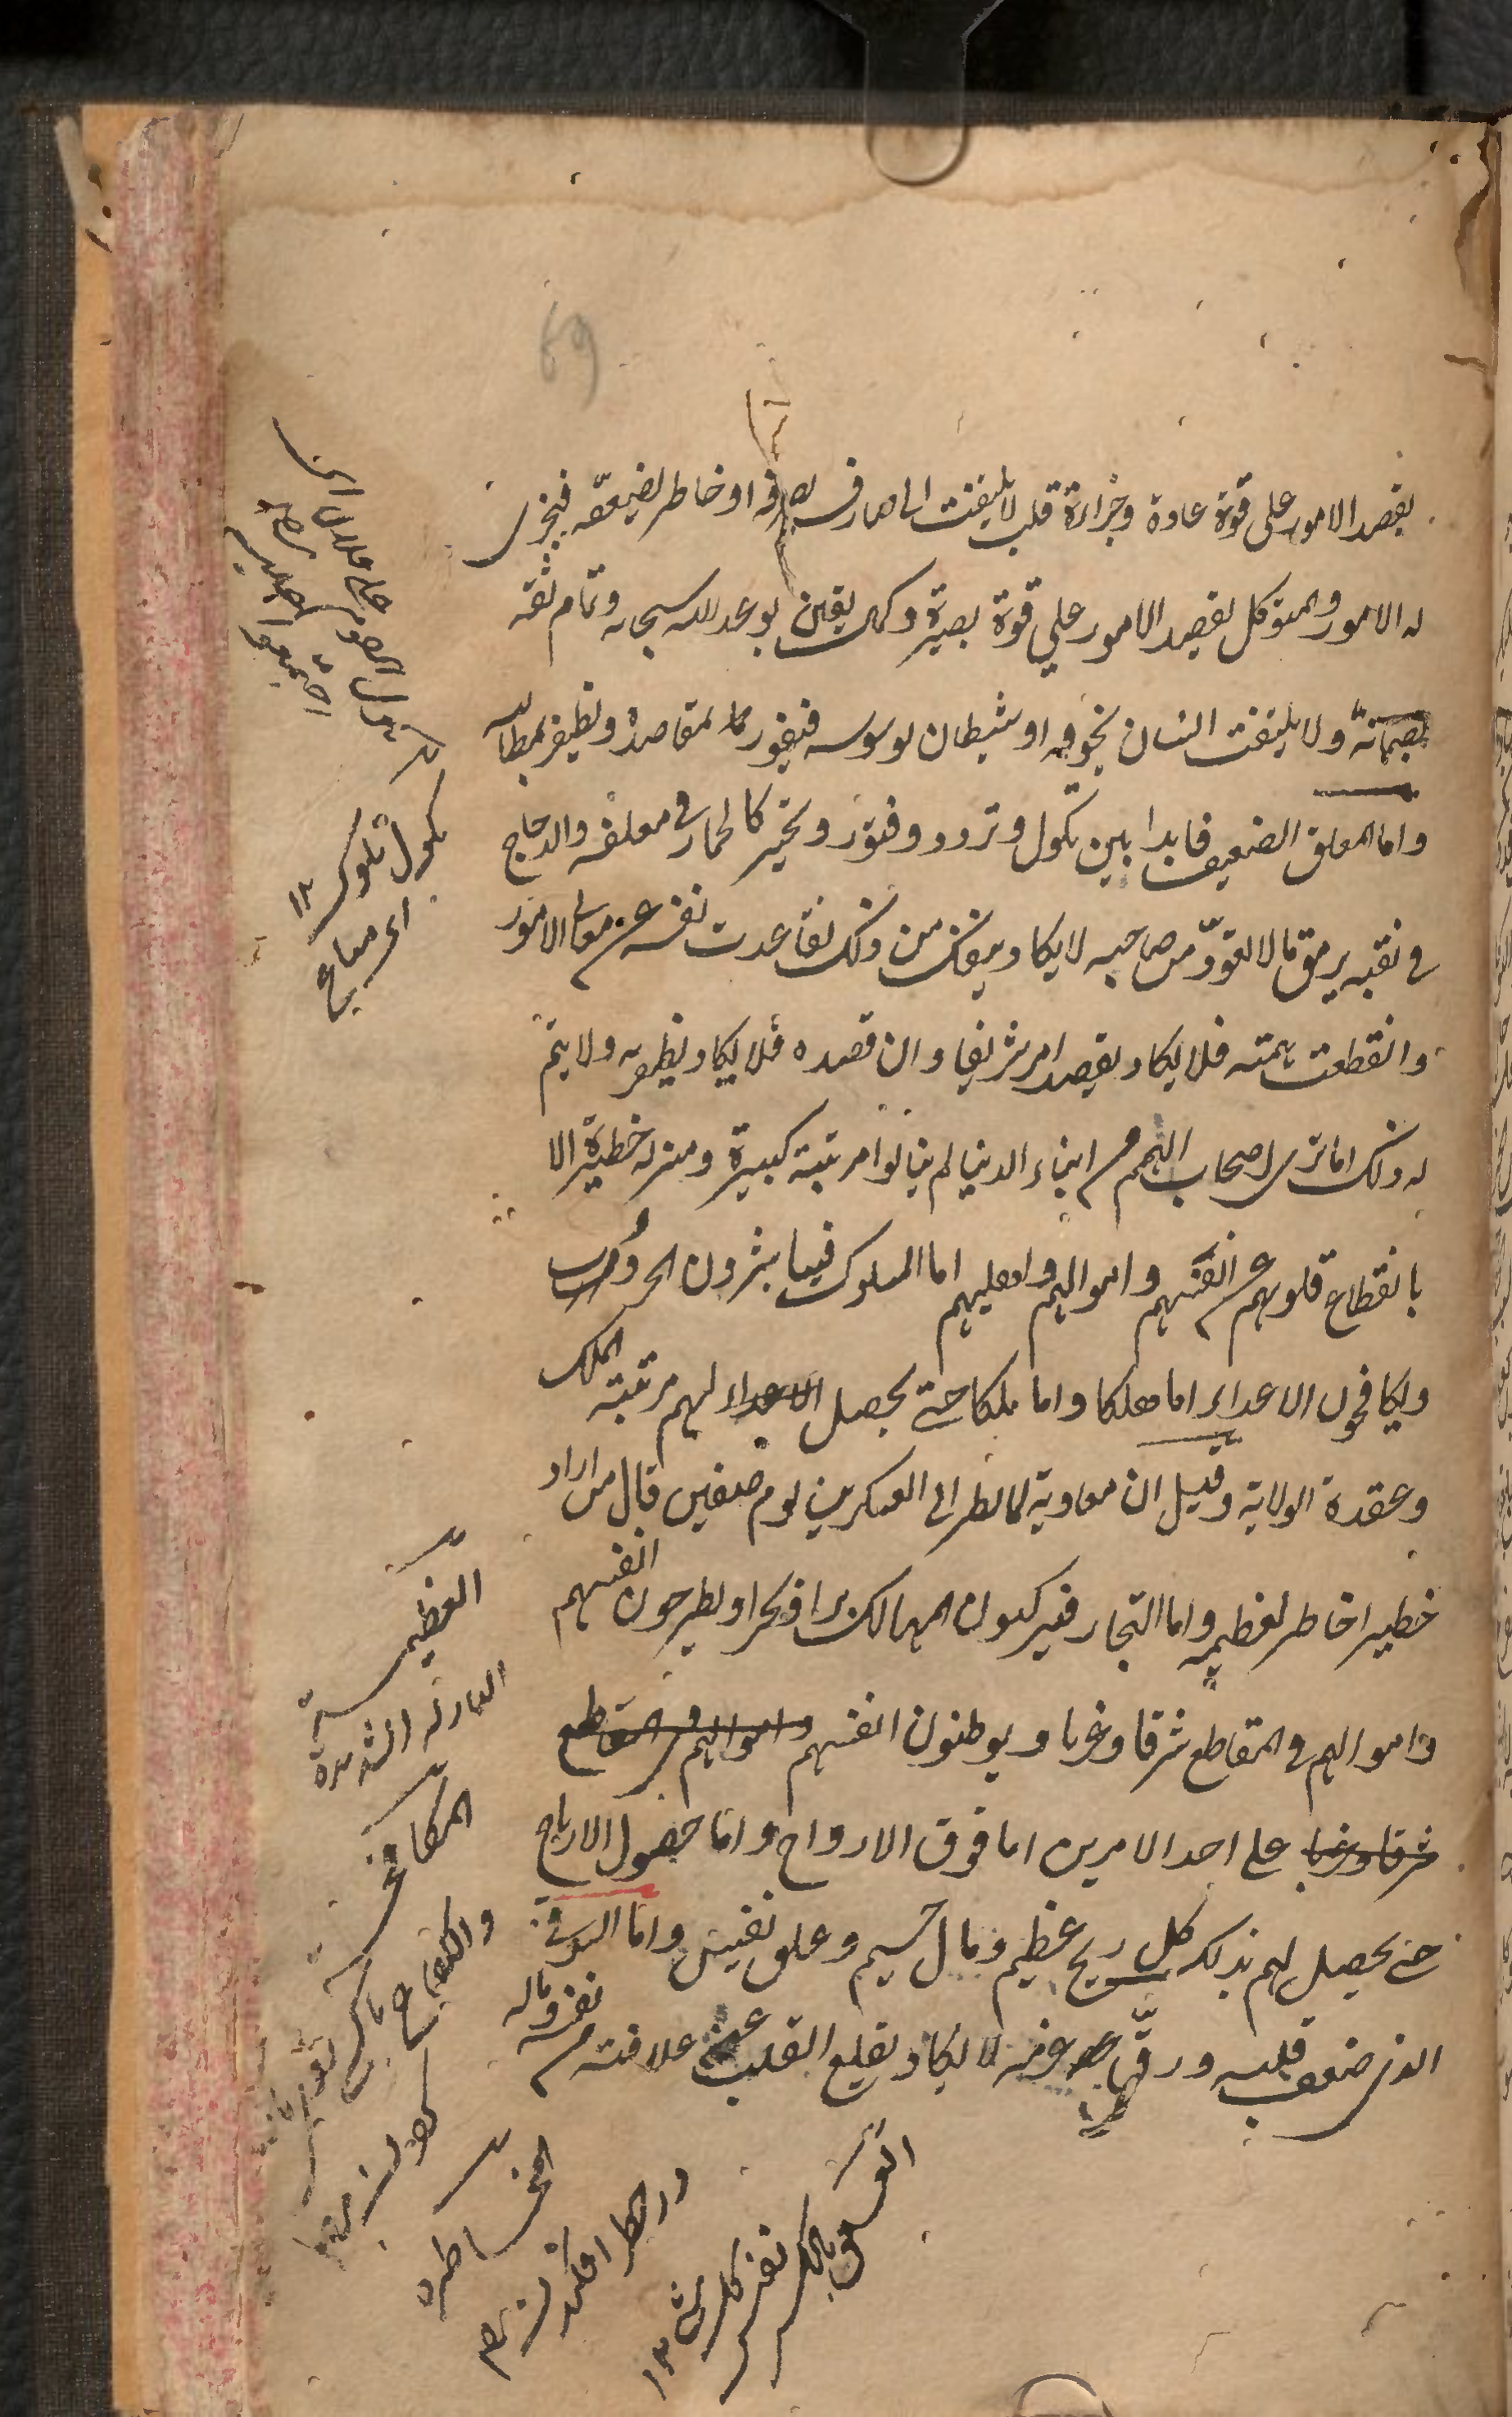 69
يقصد الامور على قوة عادة وجراءة قلب لا يلتفت الى صارف يصرفه او خاطر يضعفه فيجرى
له الامور والمتوكل يقصد الامور على قوة بصيرة وكمال يقين بوعد الله سبحانه وتمام ثقة
بضمانه ولا يلتفت انسان يخوفه او شيطان يوسوسه فيفوز بمقاصده ويظفر بمطالبه
واما المعلق الضعيف فابدا بين نكول وتردد وفتور وتحير كالحمار في معلفه والدجاج
في نقبه يرمق ما لا يتعود من صاحبه لا يكاد ينفك من ذلك تقاعدت نفسه عن معالى الامور
وانقطعت همته فلا يكاد يقصد امر شريفا وان قصده فلا يكاد يظفر به ولا يتم
له ذلك اما ترى اصحاب الهمم من ابناء الدنيا لم ينالوا مرتبة كبيرة ومنزلة خطيرة الا
بانقطاع قلوبهم عن انفسهم واموالهم واهليهم اما الملوك فيباشرون الحروب
ويكافحون الاعداء اما هلكا واما ملكا حتى يحصل الاعداء لهم مرتبة الملك
وعقدة الولاية وقيل ان معاوية لما نظر الى العسكرين يوم صفين قال من اراد
خطيرا خاطر بعظيمه واما التجار فيركبون المهالك برا وبحرا ويطرحون انفسهم
واموالهم في المقاطع شرقا وغربا ويوطنون انفسهم واموالهم في المقاطع
شرقا وغربا على احد الامرين اما فوق الارواح واما حصول الارباح
حتى يحصل لهم بذلك كل ربح عظيم ومال جسيم وعلق نفيس واما السوقى
الذى ضعف قلبه ورق عزمه لا يكاد يقلع القلب عن علاقته من نفسه وماله
نكول تلوك ١٢
اى صباع
العظيمة
النازلة الشديدة
المكافحة
والكفاح
المخاطرة
در خطر افكندن
العلق بالكسر نفيس كل شى ١٢